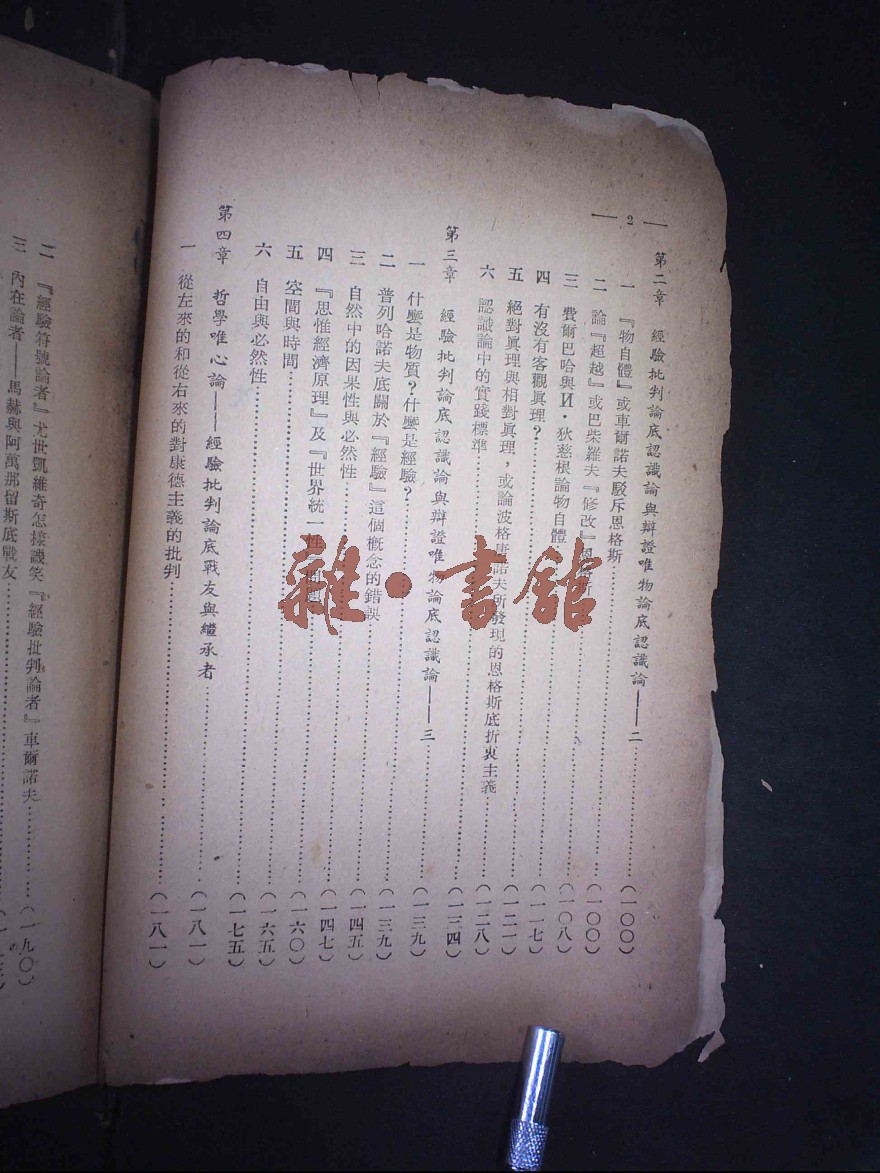 — 2 —
第二章 經驗批判論底認識論與辯證唯物論底認識論——二……(一〇〇)
一 『物自體』或車爾諾夫駁斥恩格斯……(一〇〇)
二 論『超越』或巴柴羅夫『修改』恩格斯……(一〇八)
三 費爾巴哈與И·狄慈根論物自體……(一一七)
四 有沒有客觀眞理?……(一二一)
五 絕對眞理與相對眞理,或論波格唐諾夫所發現的恩格斯底折衷主義……(一二八)
六 認識論中的實踐標準……(一三四)
第三章 經驗批判論底認識論與辯證唯物論底認識論——三……(一三九)
一 什麼是物質?什麼是經驗?……(一三九)
二 普列哈諾夫底關於『經驗』這個概念的錯誤……(一四五)
三 自然中的因果性與必然性……(一四七)
四 『思惟經濟原理』及『世界統一性』問題……(一六〇)
五 空間與時間……(一六五)
六 自由與必然性……(一七五)
第四章 哲學唯心論——經驗批判論底戰友與繼承者……(一八一)
一 從左來的和從右來的對康德主義的批判……(一八一)
二 『經驗符號論者』尤世凱維奇怎樣譏笑『經驗批判論者』車爾諾夫……(一九〇)
三 內在論者——馬赫與阿萬那留斯底戰友……
雜·書館